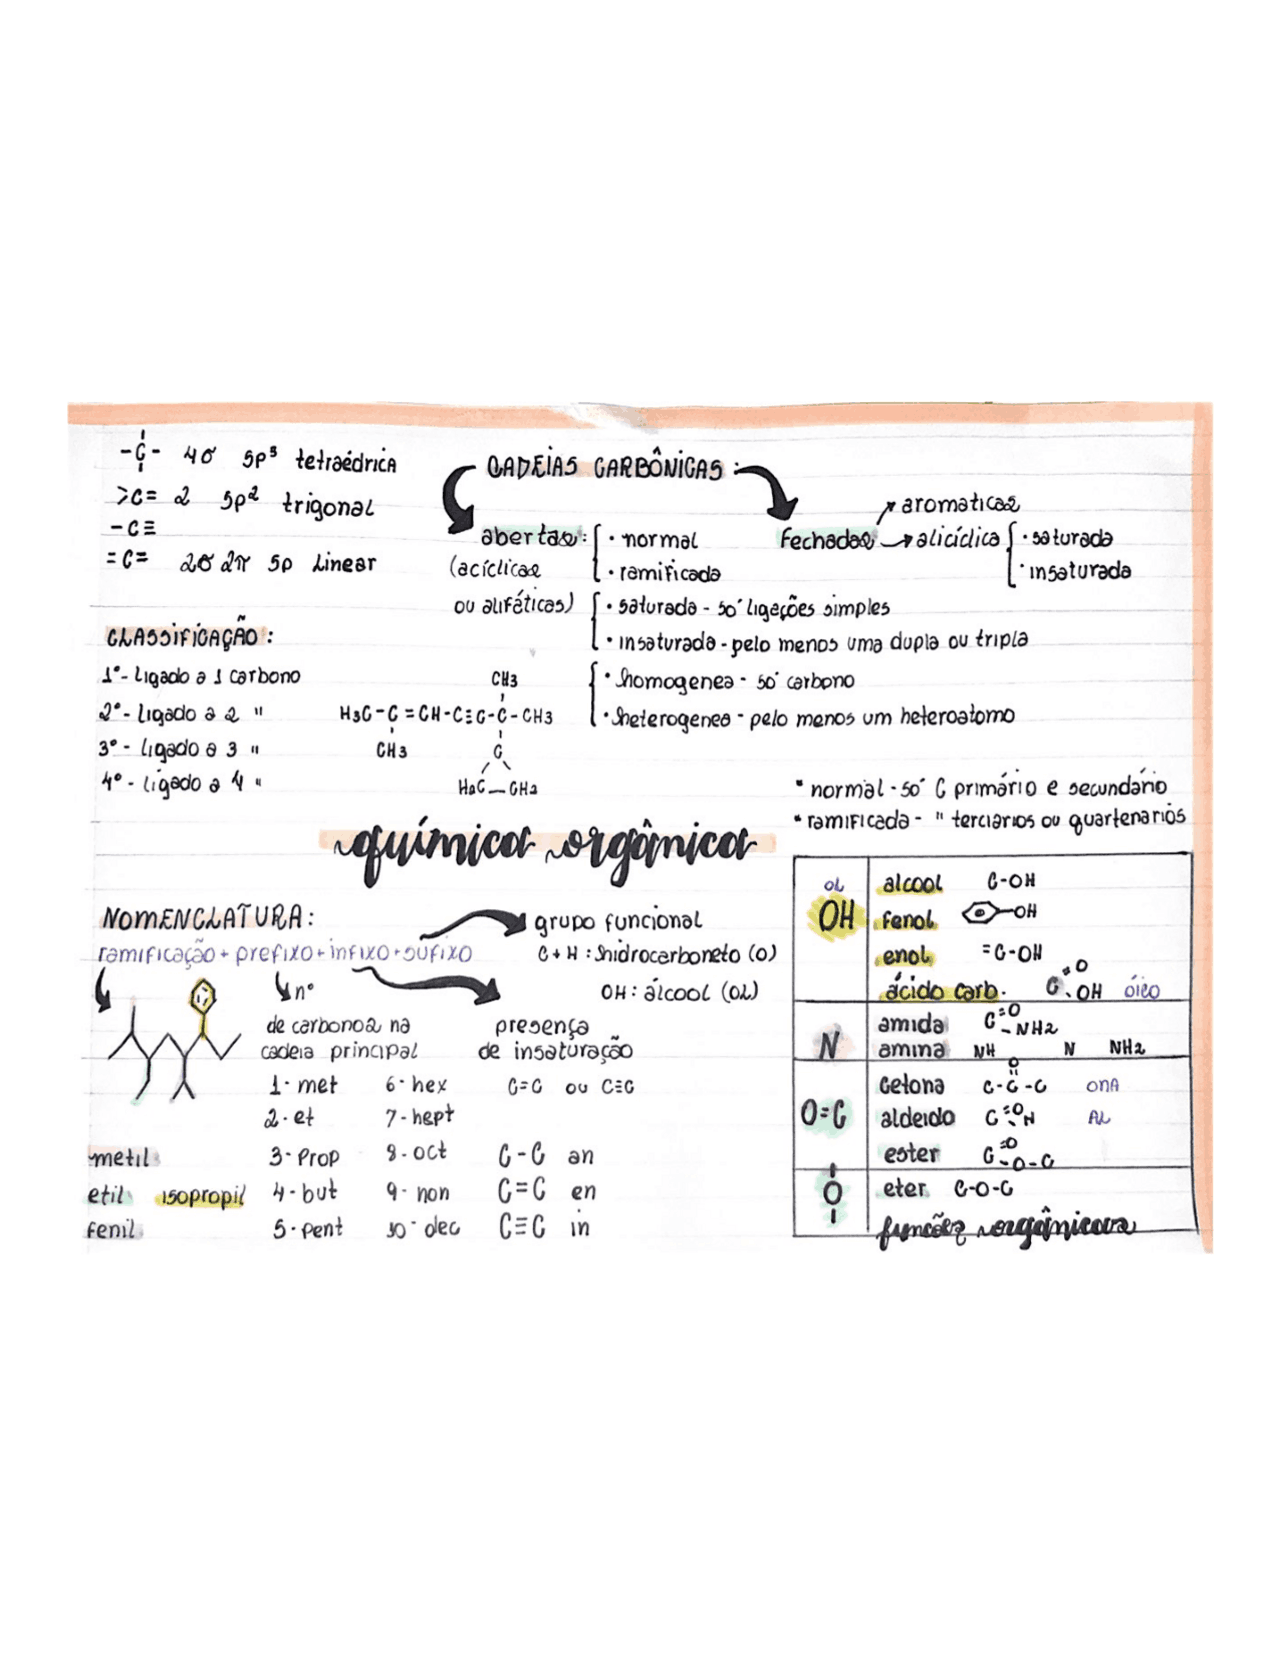 -C- 4σ sp³ tetraédrica
>C= 2 sp² trigonal
-C≡
=C= 2σ 2π sp Linear
CLASSIFICAÇÃO:
1º- Ligado a 1 carbono
2º- Ligado a 2 "
3º- Ligado a 3 "
4º- Ligado a 4 "
CADEIAS CARBÔNICAS:
abertas: · normal
(acíclicas · ramificada
ou alifáticas) · saturada - só ligações simples
· insaturada - pelo menos uma dupla ou tripla
· homogenea - só carbono
· heterogenea - pelo menos um heteroatomo
Fechadas → aromaticas
→ aliciclica · saturada
· insaturada
CH3
H3C-C=CH-C≡C-C-CH3
CH3 C
H2C—CH2
* normal - só C primário e secundário
* ramificada - " terciários ou quartenários
química orgânica
NOMENCLATURA:
ramificação + prefixo + infixo + sufixo
grupo funcional
C+H: hidrocarboneto (O)
OH: álcool (OL)
nº
de carbonos na
cadeia principal
presença
de insaturação
C=C ou C≡C
1- met 6- hex
2- et 7- hept
3- Prop 8- oct
4- but 9- non
5- pent 10- dec
C-C an
C=C en
C≡C in
metil
etil isopropil
fenil
OL
OH
alcool C-OH
fenol -OH
enol =C-OH
ácido carb. C=O OH óico
N
amida C=O -NH2
amina NH N NH2
O=C
Cetona O C-C-C ONA
aldeido C=O H AL
ester C=O -O-C
O
eter C-O-C
funções orgânicas